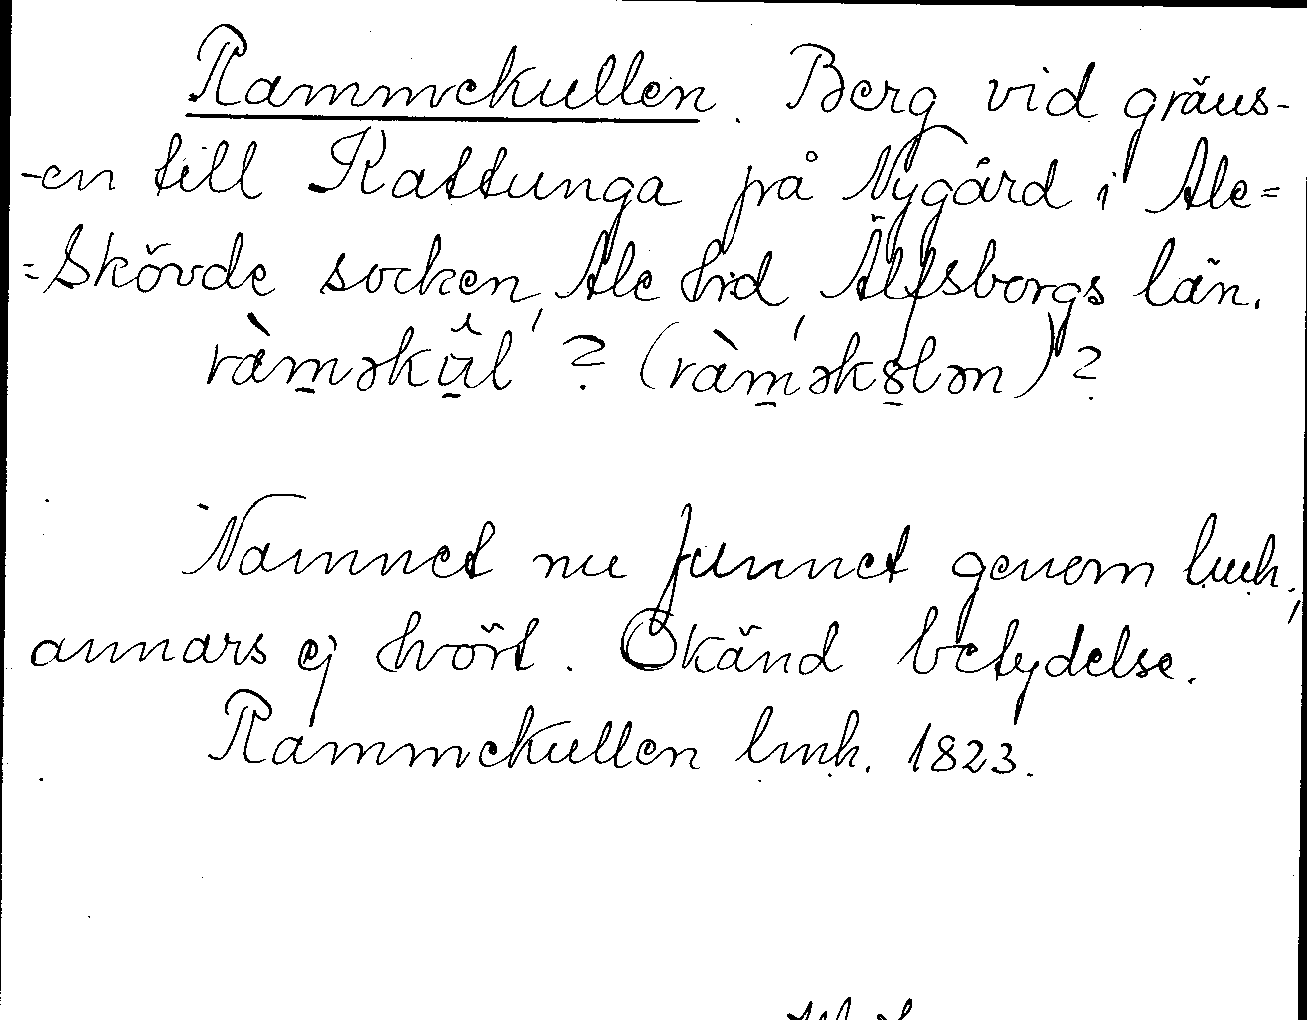 Rammekullen. Berg vid gräns-
-en till Kattunga på Nygård i Ale=
=Skövde socken, Ale hrd, Älfsborgs län.
ràm̱əkû̱l ? (ràm̱əko̱lən) ?
Namnet nu funnet genom lmh.,
annars ej hvört. Okänd betydelse.
Rammekullen lmh. 1823.